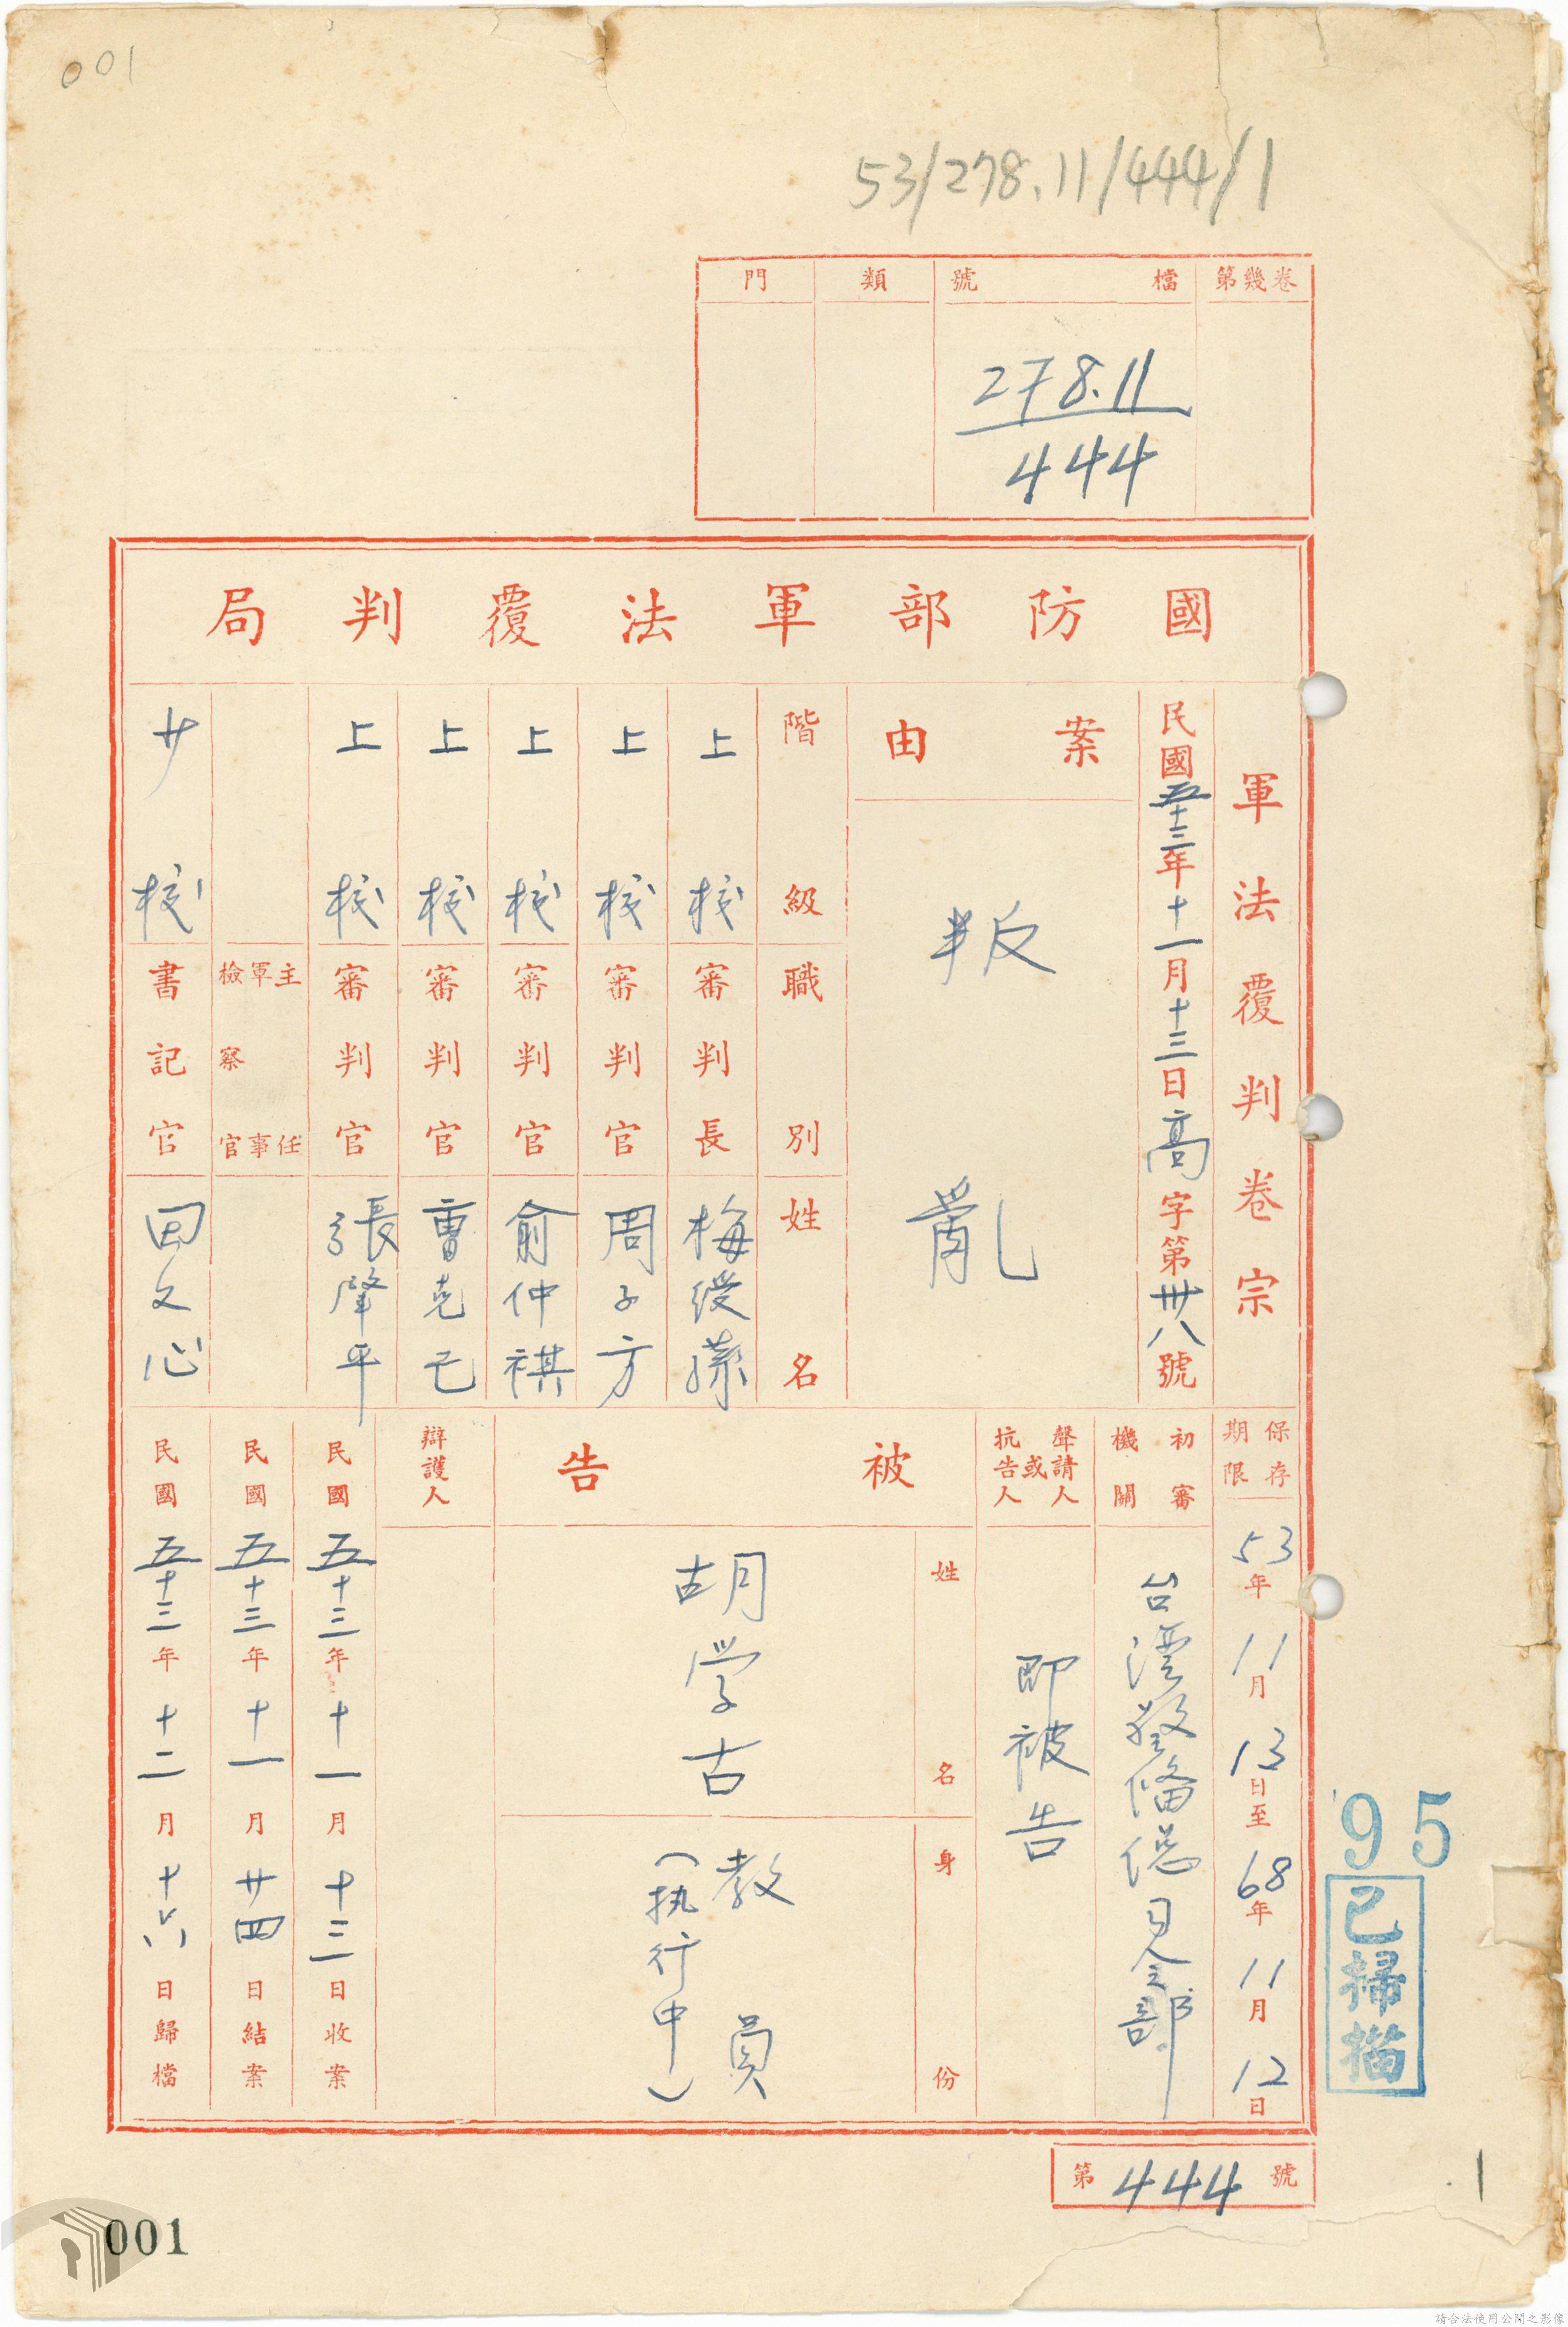 001
53/278.11/444/1
第幾卷
檔號
類
門
278.11
444
國防部軍法覆判局
軍法覆判卷宗
民國五十三年十一月十三日高字第卅八號
案由
叛亂
階級 職別 姓名
上校 審判長 梅綬蓀
上校 審判官 周子方
上校 審判官 俞仲祺
上校 審判官 曹克己
上校 審判官 張肇平
主任軍事檢察官
少校 書記官 田文心
保存期限
53年11月13日至68年11月12日
初審機關
台灣警備總司令部
聲請人或抗告人
即被告
被告
姓名
胡学古
身份
教員
(执行中)
辯護人
民國五十三年十一月十三日收案
民國五十三年十一月廿四日結案
民國五十三年十二月十六日歸檔
第444號
95
已掃描
1
001
請合法使用公開之影像